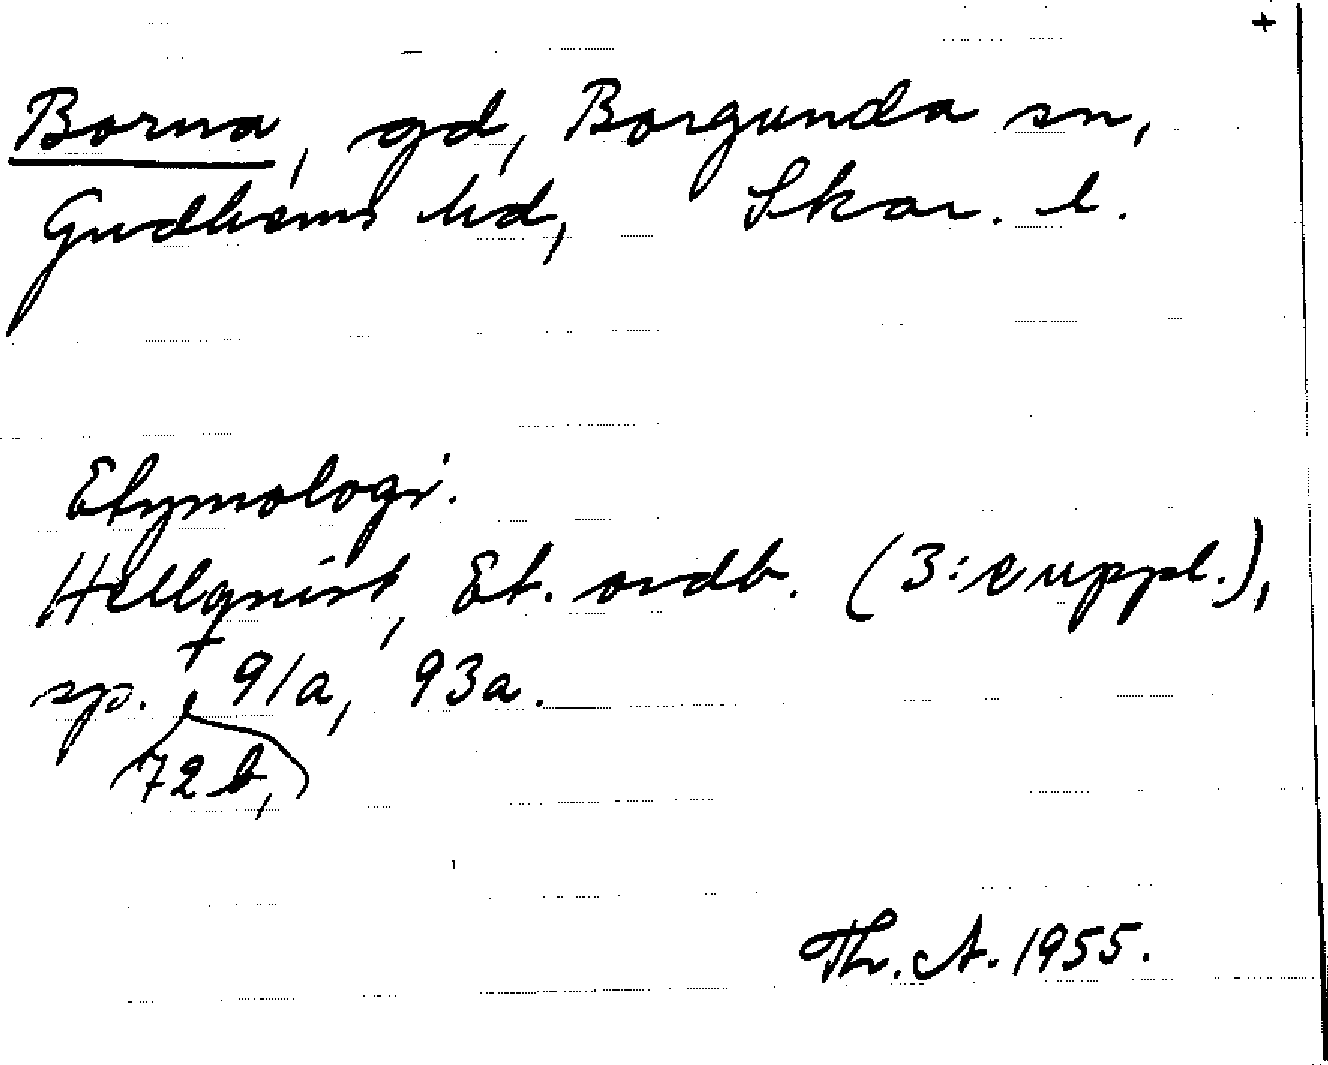 +
Borna, gd, Borgunda sn,
Gudhems hd, Skar. l.
Etymologi.
Hellquist, Et. ordb. (3: e uppl.),
sp. 72 b, 91a, 93a.
Th. A. 1955.